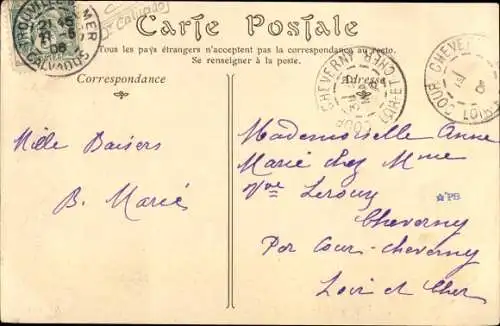 Carte Postale
Tous les pays étrangers n'acceptent pas la correspondance au recto.
Se renseigner à la poste.
Correspondance
Adresse
CALVADOS
21
08
Calvados
COUR CHEVERNY
LOIR-ET-CHER
COUR CHEVERNY
Mille Baisers
B. Marié
Mademoiselle Anne
Marie chez Mme
Vve Leroux
Cheverny
Par Cour-cheverny
Loir et Cher
PB